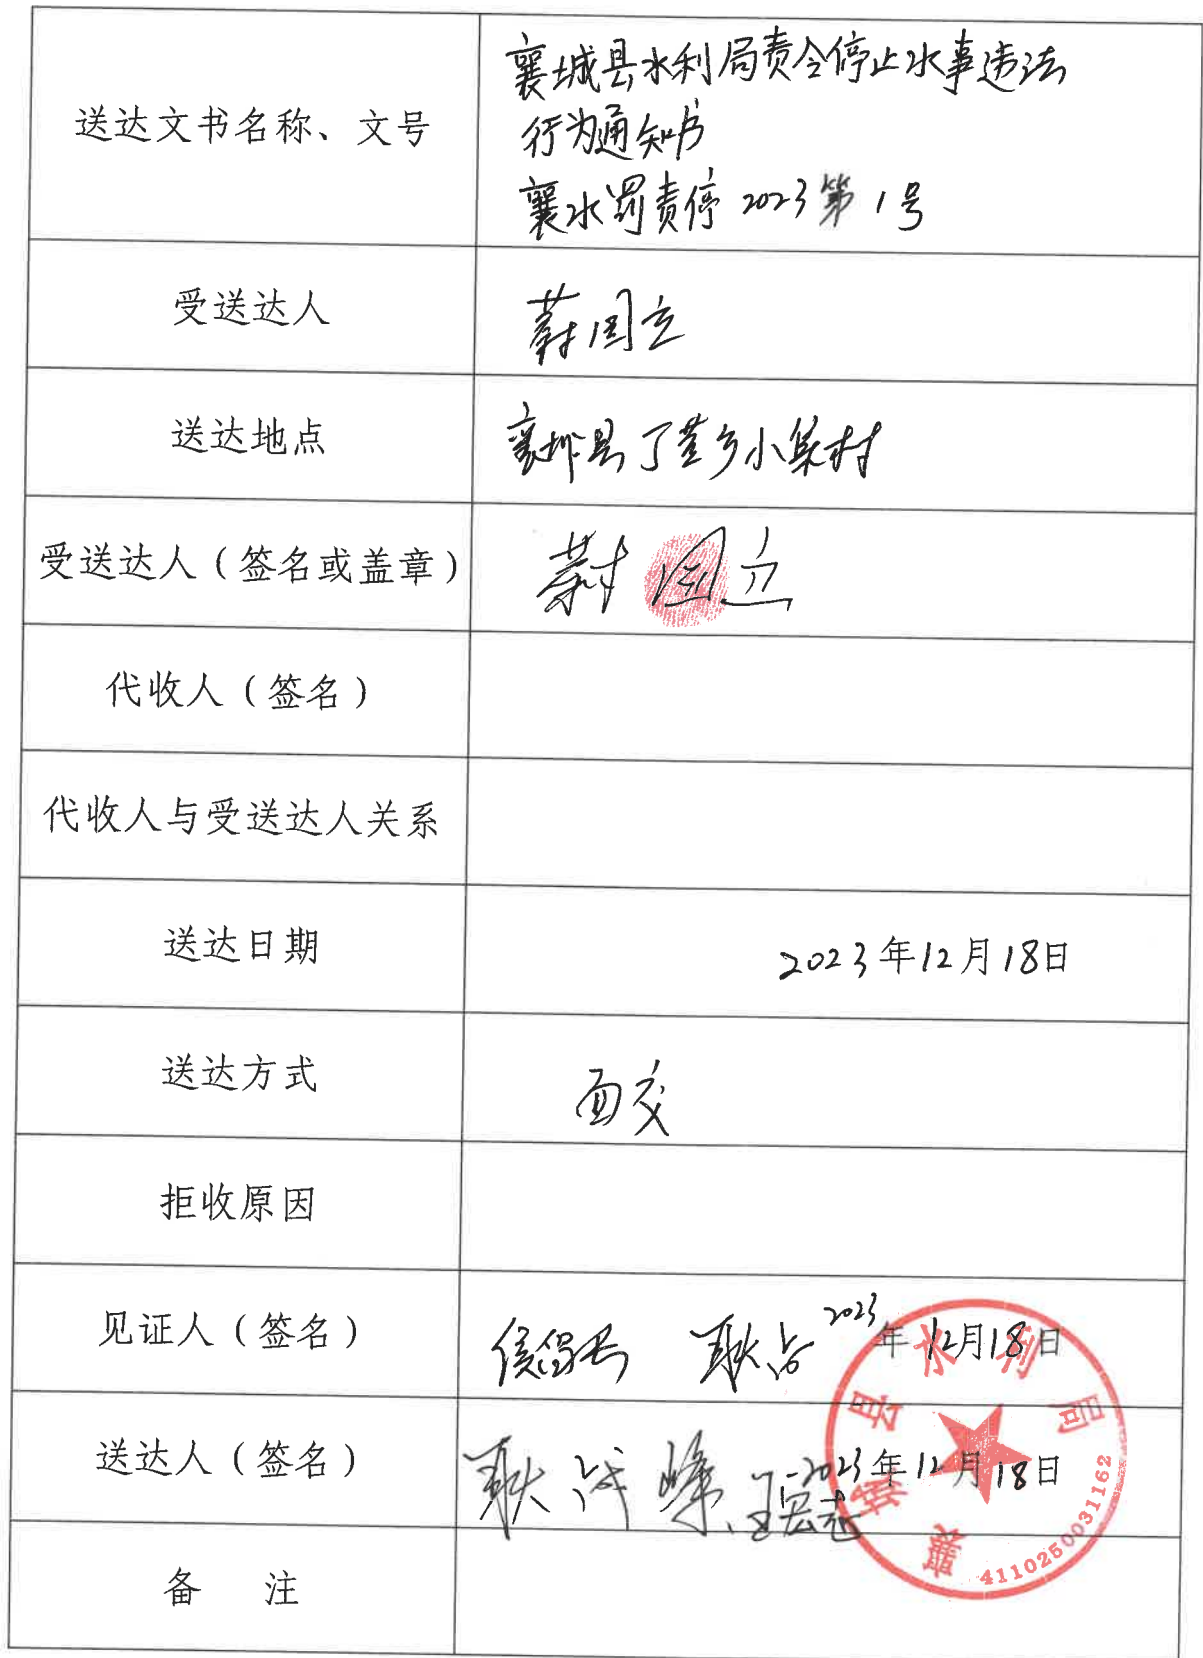 送达文书名称、文号
襄城县水利局责令停止水事违法
行为通知书
襄水罚责停 2023 第 1 号
受送达人
国立
送达地点
襄城县丁营乡小集村
受送达人（签名或盖章）
国立
代收人（签名）
代收人与受送达人关系
送达日期
2023年12月18日
送达方式
面交
拒收原因
见证人（签名）
耿 2023年12月18日
送达人（签名）
耿 峰 王宏志 2023年12月18日
备 注
襄城县水利局
4110250031162